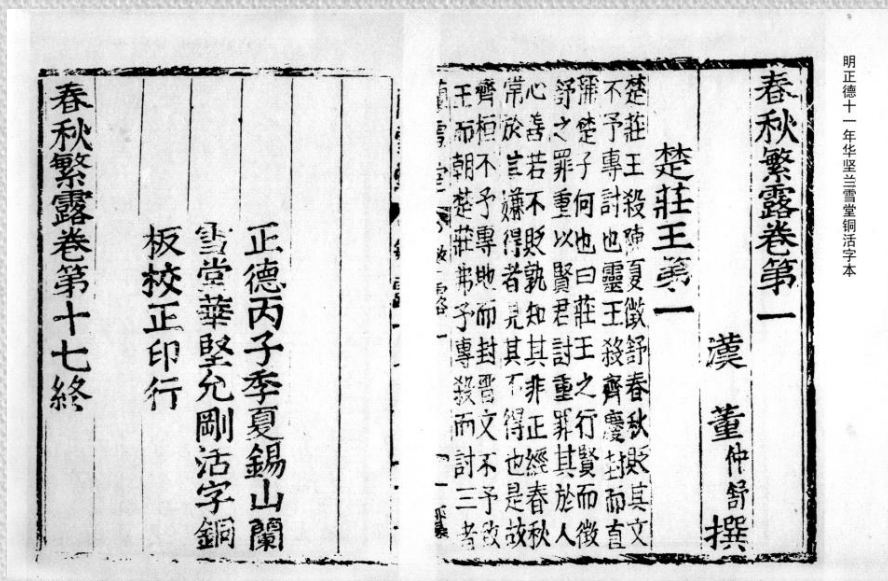 明正德十一年华坚兰雪堂铜活字本
春秋繁露卷第一
漢 董仲舒 撰
楚莊王第一
楚莊王殺陳夏徵舒春秋貶其文
不予專討也靈王殺齊慶封而直
稱楚子何也曰莊王之行賢而徵
舒之罪重以賢君討重罪其於人
心善若不貶孰知其非正經春秋
常於其嫌得者見其不得也是故
齊桓不予專地而封晉文不予致
王而朝楚莊弗予專殺而討三者
蘭雪堂 繁露一
正德丙子季夏錫山蘭
雪堂華堅允剛活字銅
板校正印行
春秋繁露卷第十七終